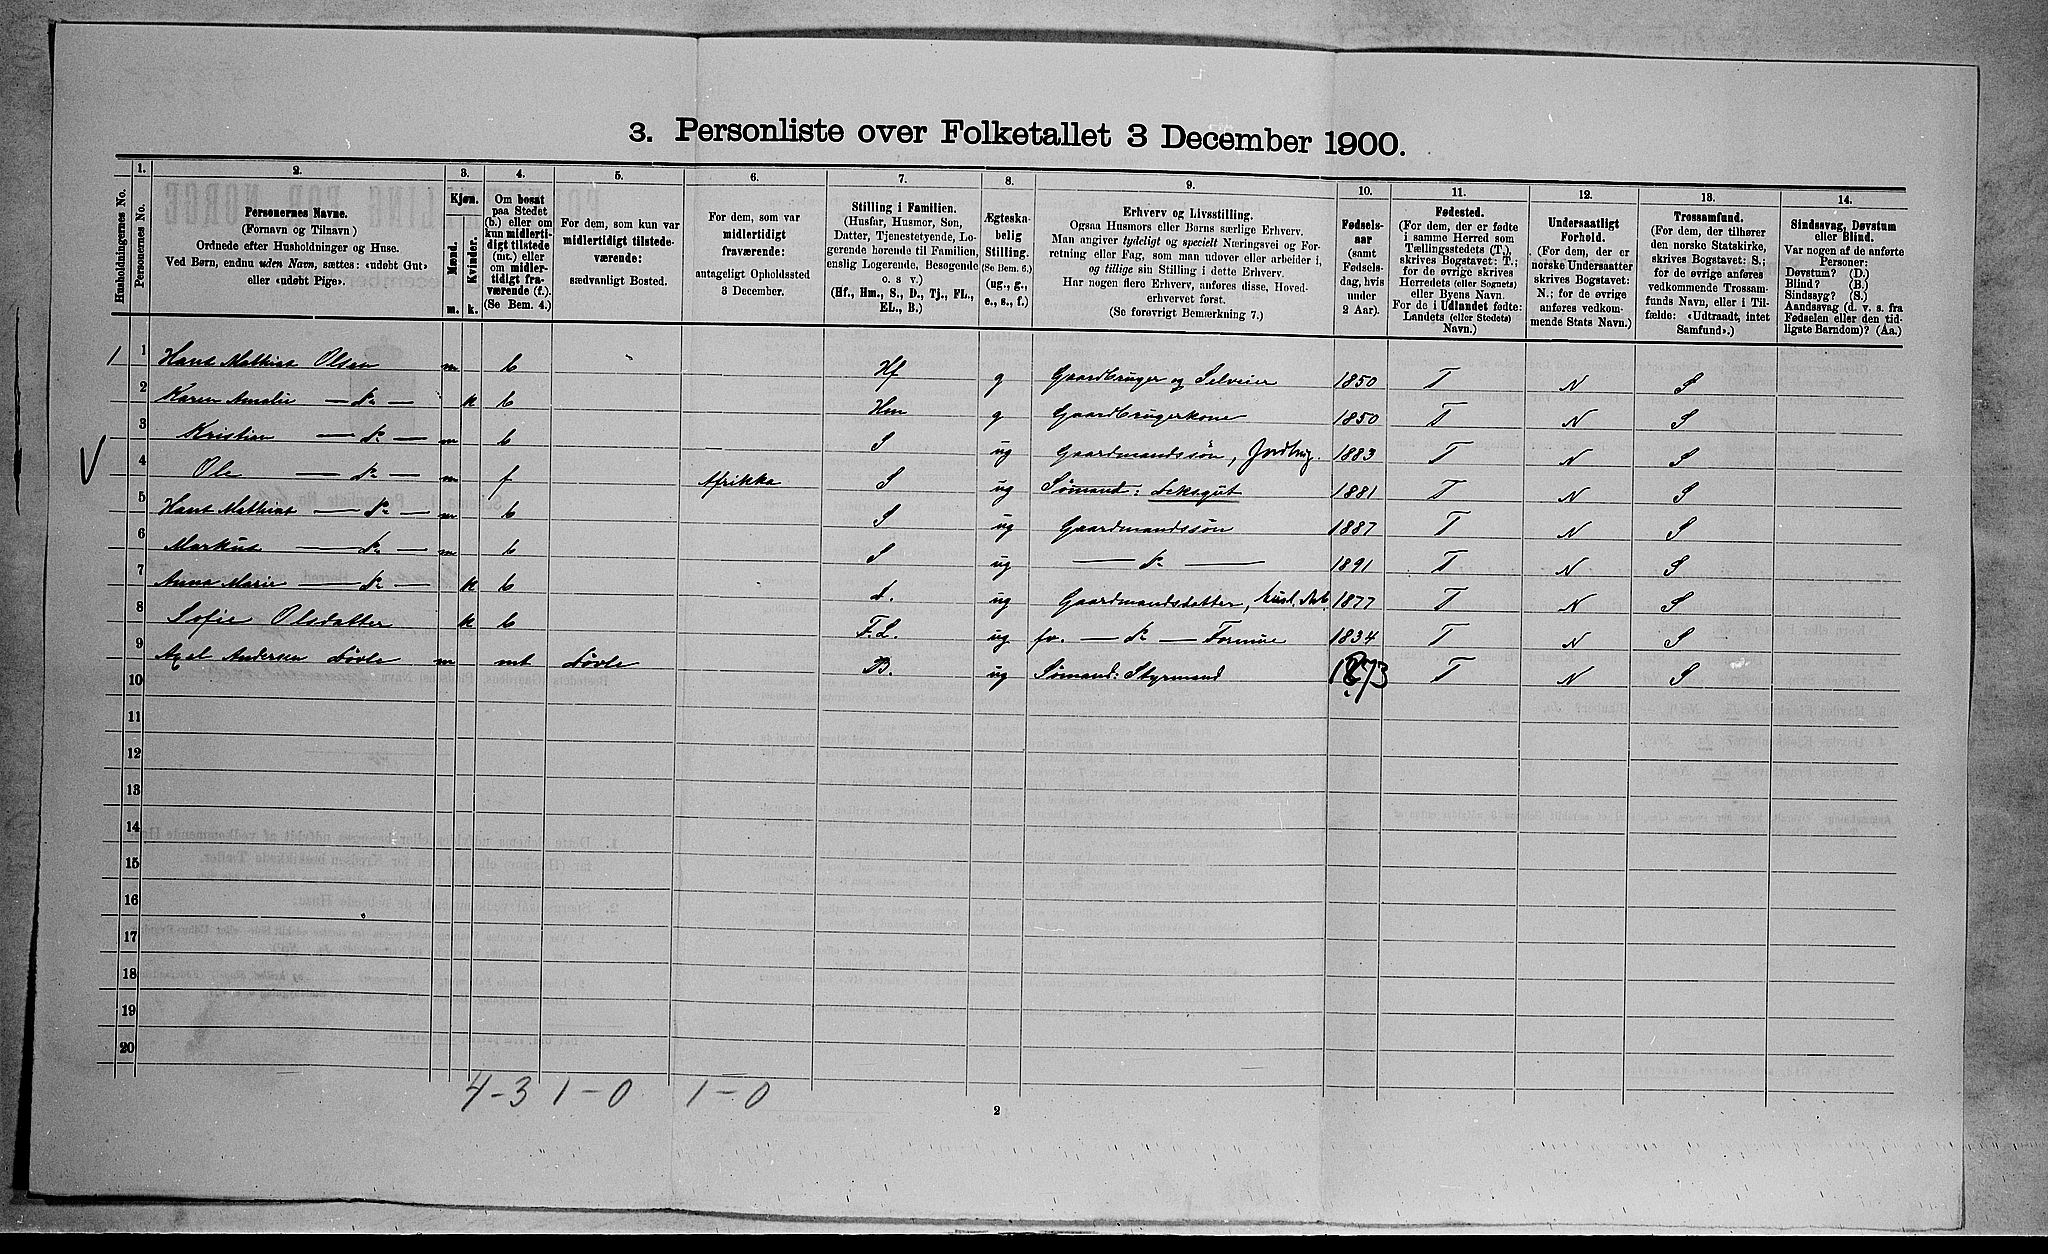 3. Personliste over Folketallet 3 December 1900.
Husholdningernes No.
1.
Personernes No.
2.
Personernes Navne.
(Fornavn og Tilnavn)
Ordnede efter Husholdninger og Huse.
Ved Børn, endnu uden Navn, sættes: «udøbt Gut»
eller «udøbt Pige».
3.
Kjøn.
Mænd.
Kvinder.
m. k.
4.
Om bosat
paa Stedet
(b.) eller om
kun midlerti-
digt tilstede
(mt.) eller
om midler-
tidigt fra-
værende (f.)
(Se Bem. 4.)
5.
For dem, som kun var
midlertidigt tilstede-
værende:
sædvanligt Bosted.
6.
For dem, som var
midlertidigt
fraværende:
antageligt Opholdssted
3 December.
7.
Stilling i Familien.
(Husfar, Husmor, Søn,
Datter, Tjenestetyende, Lo-
gerende hørende til Familien,
enslig Logerende, Besøgende
o. s v.)
(Hf., Hm., S., D., Tj., FL.,
EL., B.)
8.
Ægteska-
belig
Stilling.
(Se Bem. 6.)
(ug., g.,
e., s., f.)
9.
Erhverv og Livsstilling.
Ogsaa Husmors eller Børns særlige Erhverv.
Man angiver tydeligt og specielt Næringsvei og For-
retning eller Fag, som man udover eller arbeider i,
og tillige sin Stilling i dette Erhverv.
Har nogen flere Erhverv, anføres disse, Hoved-
erhvervet først.
(Se forøvrigt Bemærkning 7.)
10.
Fødsels-
aar
(samt
Fødsels-
dag, hvis
under
2 Aar).
11.
Fødested.
(For dem, der er fødte
i samme Herred som
Tællingsstedets (T.),
skrives Bogstavet: T.;
for de øvrige skrives
Herredets (eller Sognets)
eller Byens Navn.
For de i Udlandet fødte:
Landets (eller Stedets)
Navn.)
12.
Undersaatligt
Forhold.
(For dem, der er
norske Undersaatter
skrives Bogstavet:
N.; for de øvrige
anføres vedkom-
mende Stats Navn.)
13.
Trossamfund.
(For dem, der tilhører
den norske Statskirke,
skrives Bogstavet: S.;
for de øvrige anføres
vedkommende Trossam-
funds Navn, eller i Til-
fælde: «Udtraadt, intet
Samfund».)
14.
Sindssvag, Døvstum
eller Blind.
Var nogen af de anførte
Personer:
Døvstum? (D.)
Blind? (B.)
Sindssyg? (S.)
Aandssvag (d. v. s. fra
Fødselen eller den tid-
ligste Barndom)? (Aa.)
1 1 Hans Mathias Olsen m b Hf g Gaardbruger og Selveier 1850 T N S
2 Karen Amalie — Do — k b Hm g Gaardbrugerkone 1850 T N S
3 Kristian — Do — m b S ug Gaardmandssøn, Jordbrug. 1883 T N S
4 Ole — Do — m f Afrikka S ug Sømand: Deksgut 1881 T N S
5 Hans Mathias — Do — m b S ug Gaardmandssøn 1887 T N S
6 Markus — Do — m b S ug — Do — 1891 T N S
7 Anna Marie — Do — k b d. ug Gaardmandsdatter, 1877 T N S
8 Sofie Olsdatter k b F.L. ug fv. — Do — Formue 1834 T N S
9 Axel Andersen Løvle m mt Løvle B. ug Sømand: Styrmand 1873 T N S
10
11
12
13
14
15
16
17
18
19
20
4-3 1-0 1-0
2